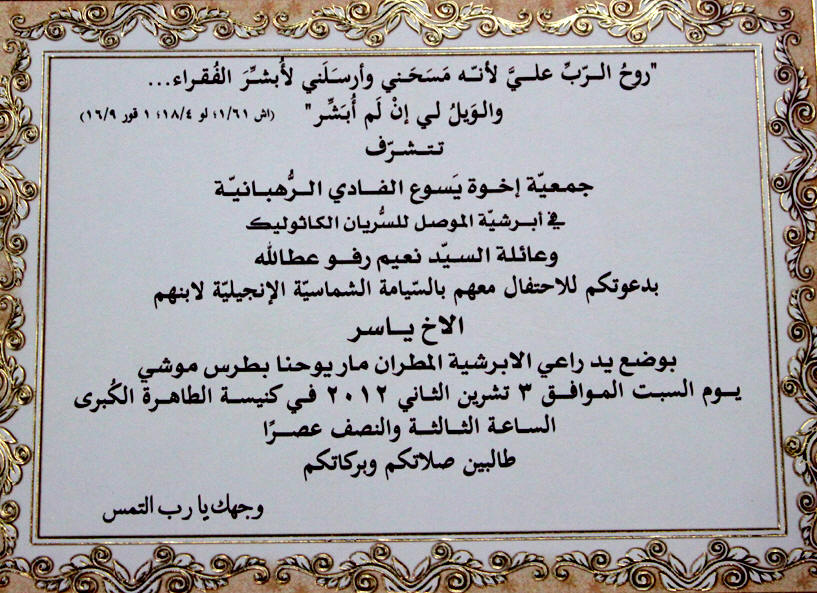 "روحُ الـرّبِّ علـيَّ لأنّـه مَسَحَـني وأرسـلَني لأُبشّـرَ الفُقـراء...
والـوَيلُ لـي إنْ لَم أُبَشّـر" (اش ١/٦١؛ لو ١٨/٤؛ ١ قور ١٦/٩)
تتـشـرّف
جمعيّـة إخـوة يَسـوع الفـادي الـرُّهبـانيّـة
في أبـرشيّـة الموصل للسُّريان الكاثوليك
وعائلـة السـيّـد نعيـم رفـو عطـالله
بدعوتكم للاحتفال معهم بالسّيامة الشماسيّة الإنجيليّة لابنهم
الاخ يـاسـر
بوضع يد راعي الابرشية المطران مار يوحنا بطرس موشي
يـوم السبت المـوافـق ٣ تشرين الثاني ٢٠١٢ فـي كنيسـة الطاهـرة الكُبرى
السـاعـة الثـالثـة والنصف عصـرًا
طالبين صلاتكم وبركاتكم
وجهك يا رب التمس